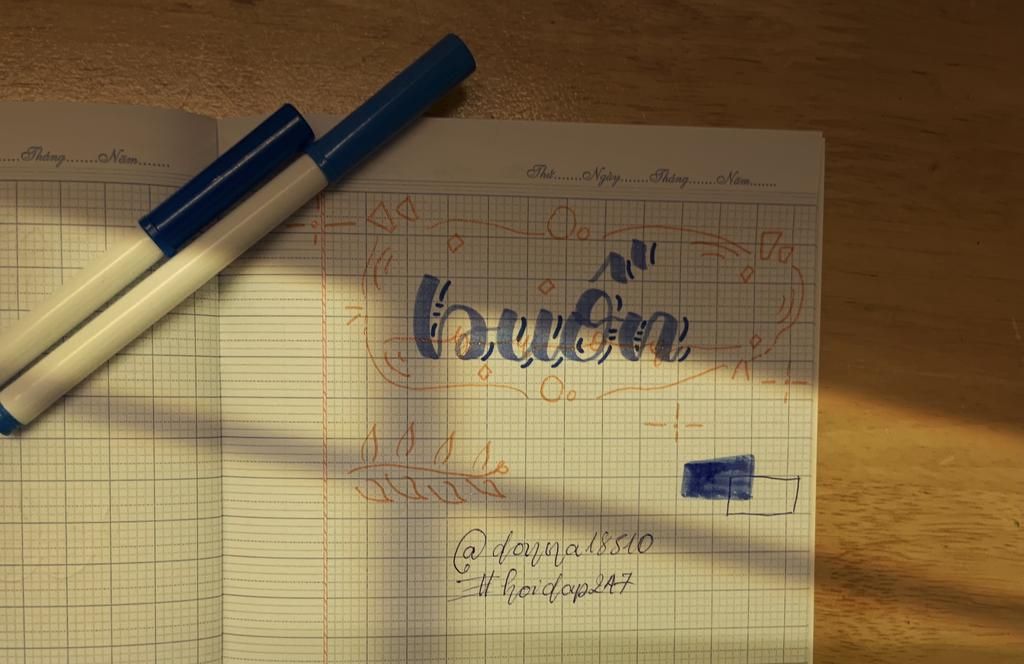 ...Tháng.......Năm.......
Thứ.......Ngày.......Tháng.......Năm.......
buồn
@donna18510
#hoidap247